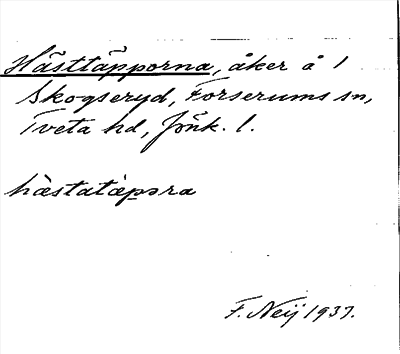 Hästtäpporna, åker å 1
Skogseryd, Forserums sn,
Tveta hd, Jönk. l.
hàstatàpəra
F. Neij 1937.